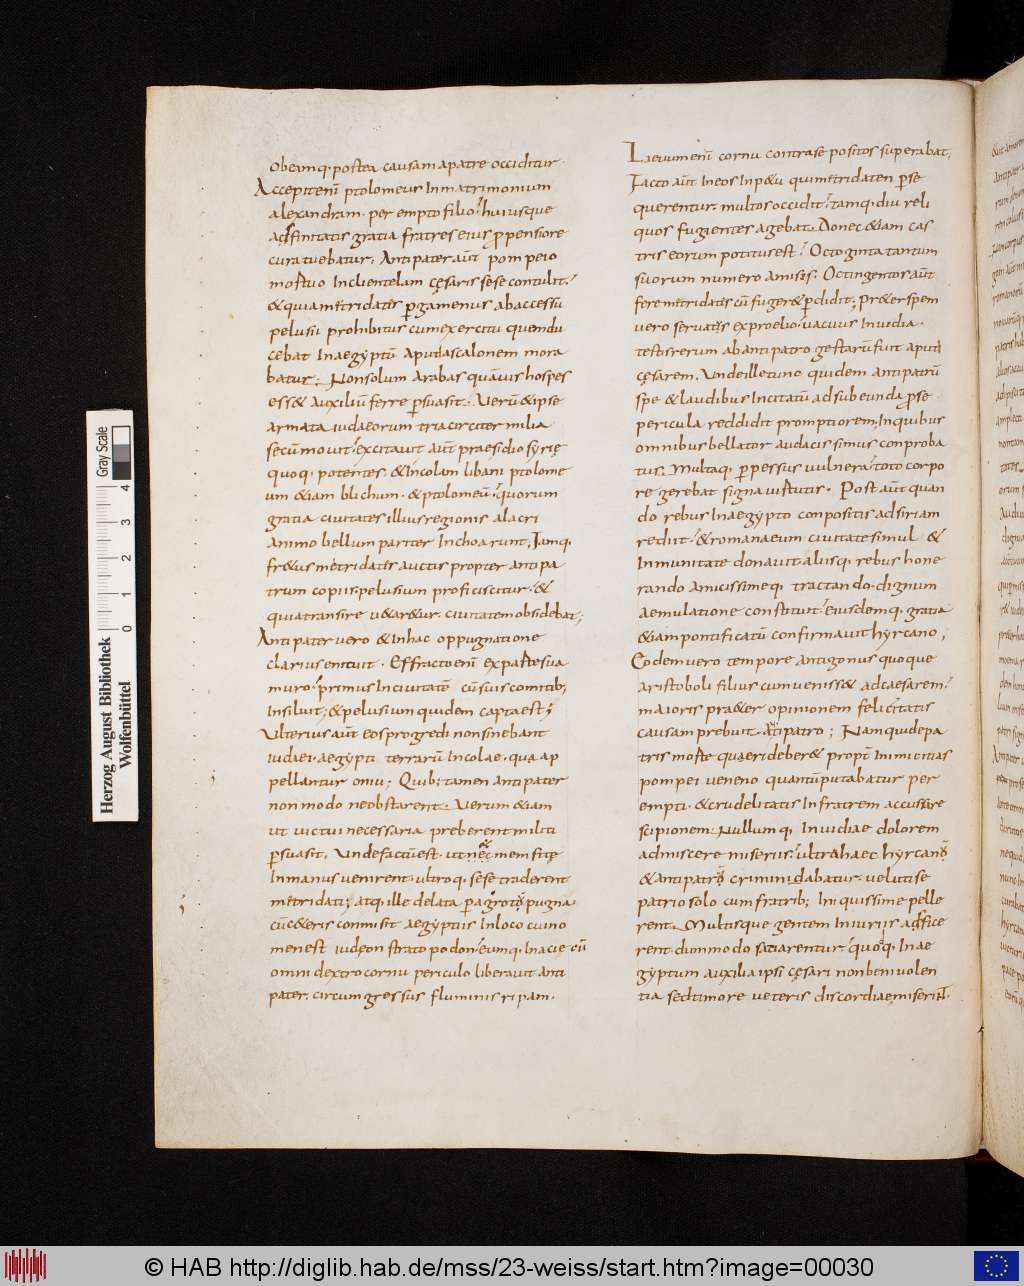 obeamq· postea causam apatre occiditur·
Accepitenī ptolomeus Inmatrimonium
alexandram· per empto filio· huiusque
adfinitatis gratia fratres eius ꝓpensiore
cura tuebatur; Antipater aūt pompeio
mortuo Inclientelam cęsaris sese contulit·
&quiametridates ꝑgamenus abaccessu
pelusii prohibitus cumexercitu quemdu
cebat Inaegyptū apudascalonem mora
batur; Nonsolum arabas quāuis hospes
ess& auxiliū ferre ꝑsuasit· Verū&ipse
armata iudaeorum tria circiter milia
secū mouit· excitauit aūt praesidio syrię
quoq· potentes· &incolam libani ptolome
um &iam bli chum· &ptolomeū· quorum
gratia ciuitates illius regionis alacri
animo bellum pariter Inchoarunt; Iamq·
fr&us metridates auctis propter antipa
trum copiis· pelusium proficiscitur· &
quia transire u&ar&ur· ciuitatem obsidebat;
Antipater uero &Inhac oppugnatione
clarius enituit· Effracto enī exparte sua
muro· primus Inciuitatē cū suis comitib;
Insiluit; &pelusium quidem captaest;
Vlterius aūt eos progredi nonsinebant
iudaei· aegypti terrarū Incolae· qua ap
pellantur oniu; Quib; tamen antipater
non modo neobstarent· Verum &iam
ut uictui necessaria preberent militi
ꝑsuasit· Vndefactūest· ut nec memfitę
Inmanus uenirent· ultroq· sese traderent
metridati; atq· ille delata ꝑagrato pugna
cūc&eris conmisit aegyptiis Inloco cui no
men est iudeon stratopodon· eumq· Inacie cū
omni dextro cornu periculo liberauit anti
pater· circumgressus fluminis ripam·
Laeuum enī cornu contrase positos superabat·
Iacto aūt Ineos Inp&u qui metridaten ꝑse
querentur· multos occidit· tamq· diu reli
quos fugientes agebat· Donec &iam cas
tris eorum potitus est· Octoginta tantum
suorum numero amisis· Octingentos aūt
fere metridates cū fuger& ꝑdidit; pr&erspem
uero seruatus exproelio· uacuus Inuidia·
testis rerum abantipatro gestarū fuit aput
cęsarem· Vnde ille tunc quidem antipatrū
spe &laudibus Incitatū adsubeunda ꝓse
pericula reddidit promptiorem; Inquibus
omnibus bellator audacissimus conproba
tus· Multaq· ꝑpessus uulnera· toto corpo
re gerebat signa uirtutis· Post aūt quan
do rebus Inaegypto conpositis adsiriam
rediit· &romanaeum ciuitate simul &
Inmunitate donauit aliisq· rebus hone
rando amicissimeq· tractando· dignum
aemulatione constituit· Eiusdemq· gratia
&iam pontificatū confirmauit hyrcano;
Eodem uero tempore antigonus quoque
aristoboli filius cum uenisset adcaesarem·
maioris pra&er opinionem felicitatis
causam prebuit· antipatro; Nam qui de pa
tris morte quaeri deber& ꝓpt· Inimicitias
pompei ueneno quantū putabatur per
empti· &crudelitatis Infratrem accussare
scipionem· Nullumq· Inuidiae dolorem
admiscere miseriis· ultra haec hyrcano
&antipatro criminidabatur· ueluti se
patrio solo cum fratrib; Iniquissime pelle
rent· Multisque gentem Iniuriis adfice
rent· dum modo satiarentur· quoq· Inae
gyptum auxilia ipsi cęsari nonbeniuolen
tia sedtimore ueteris discordiae miserīt·
Herzog August Bibliothek
Wolfenbüttel
Gray Scale
0 1 2 3 4
© HAB http://diglib.hab.de/mss/23-weiss/start.htm?image=00030